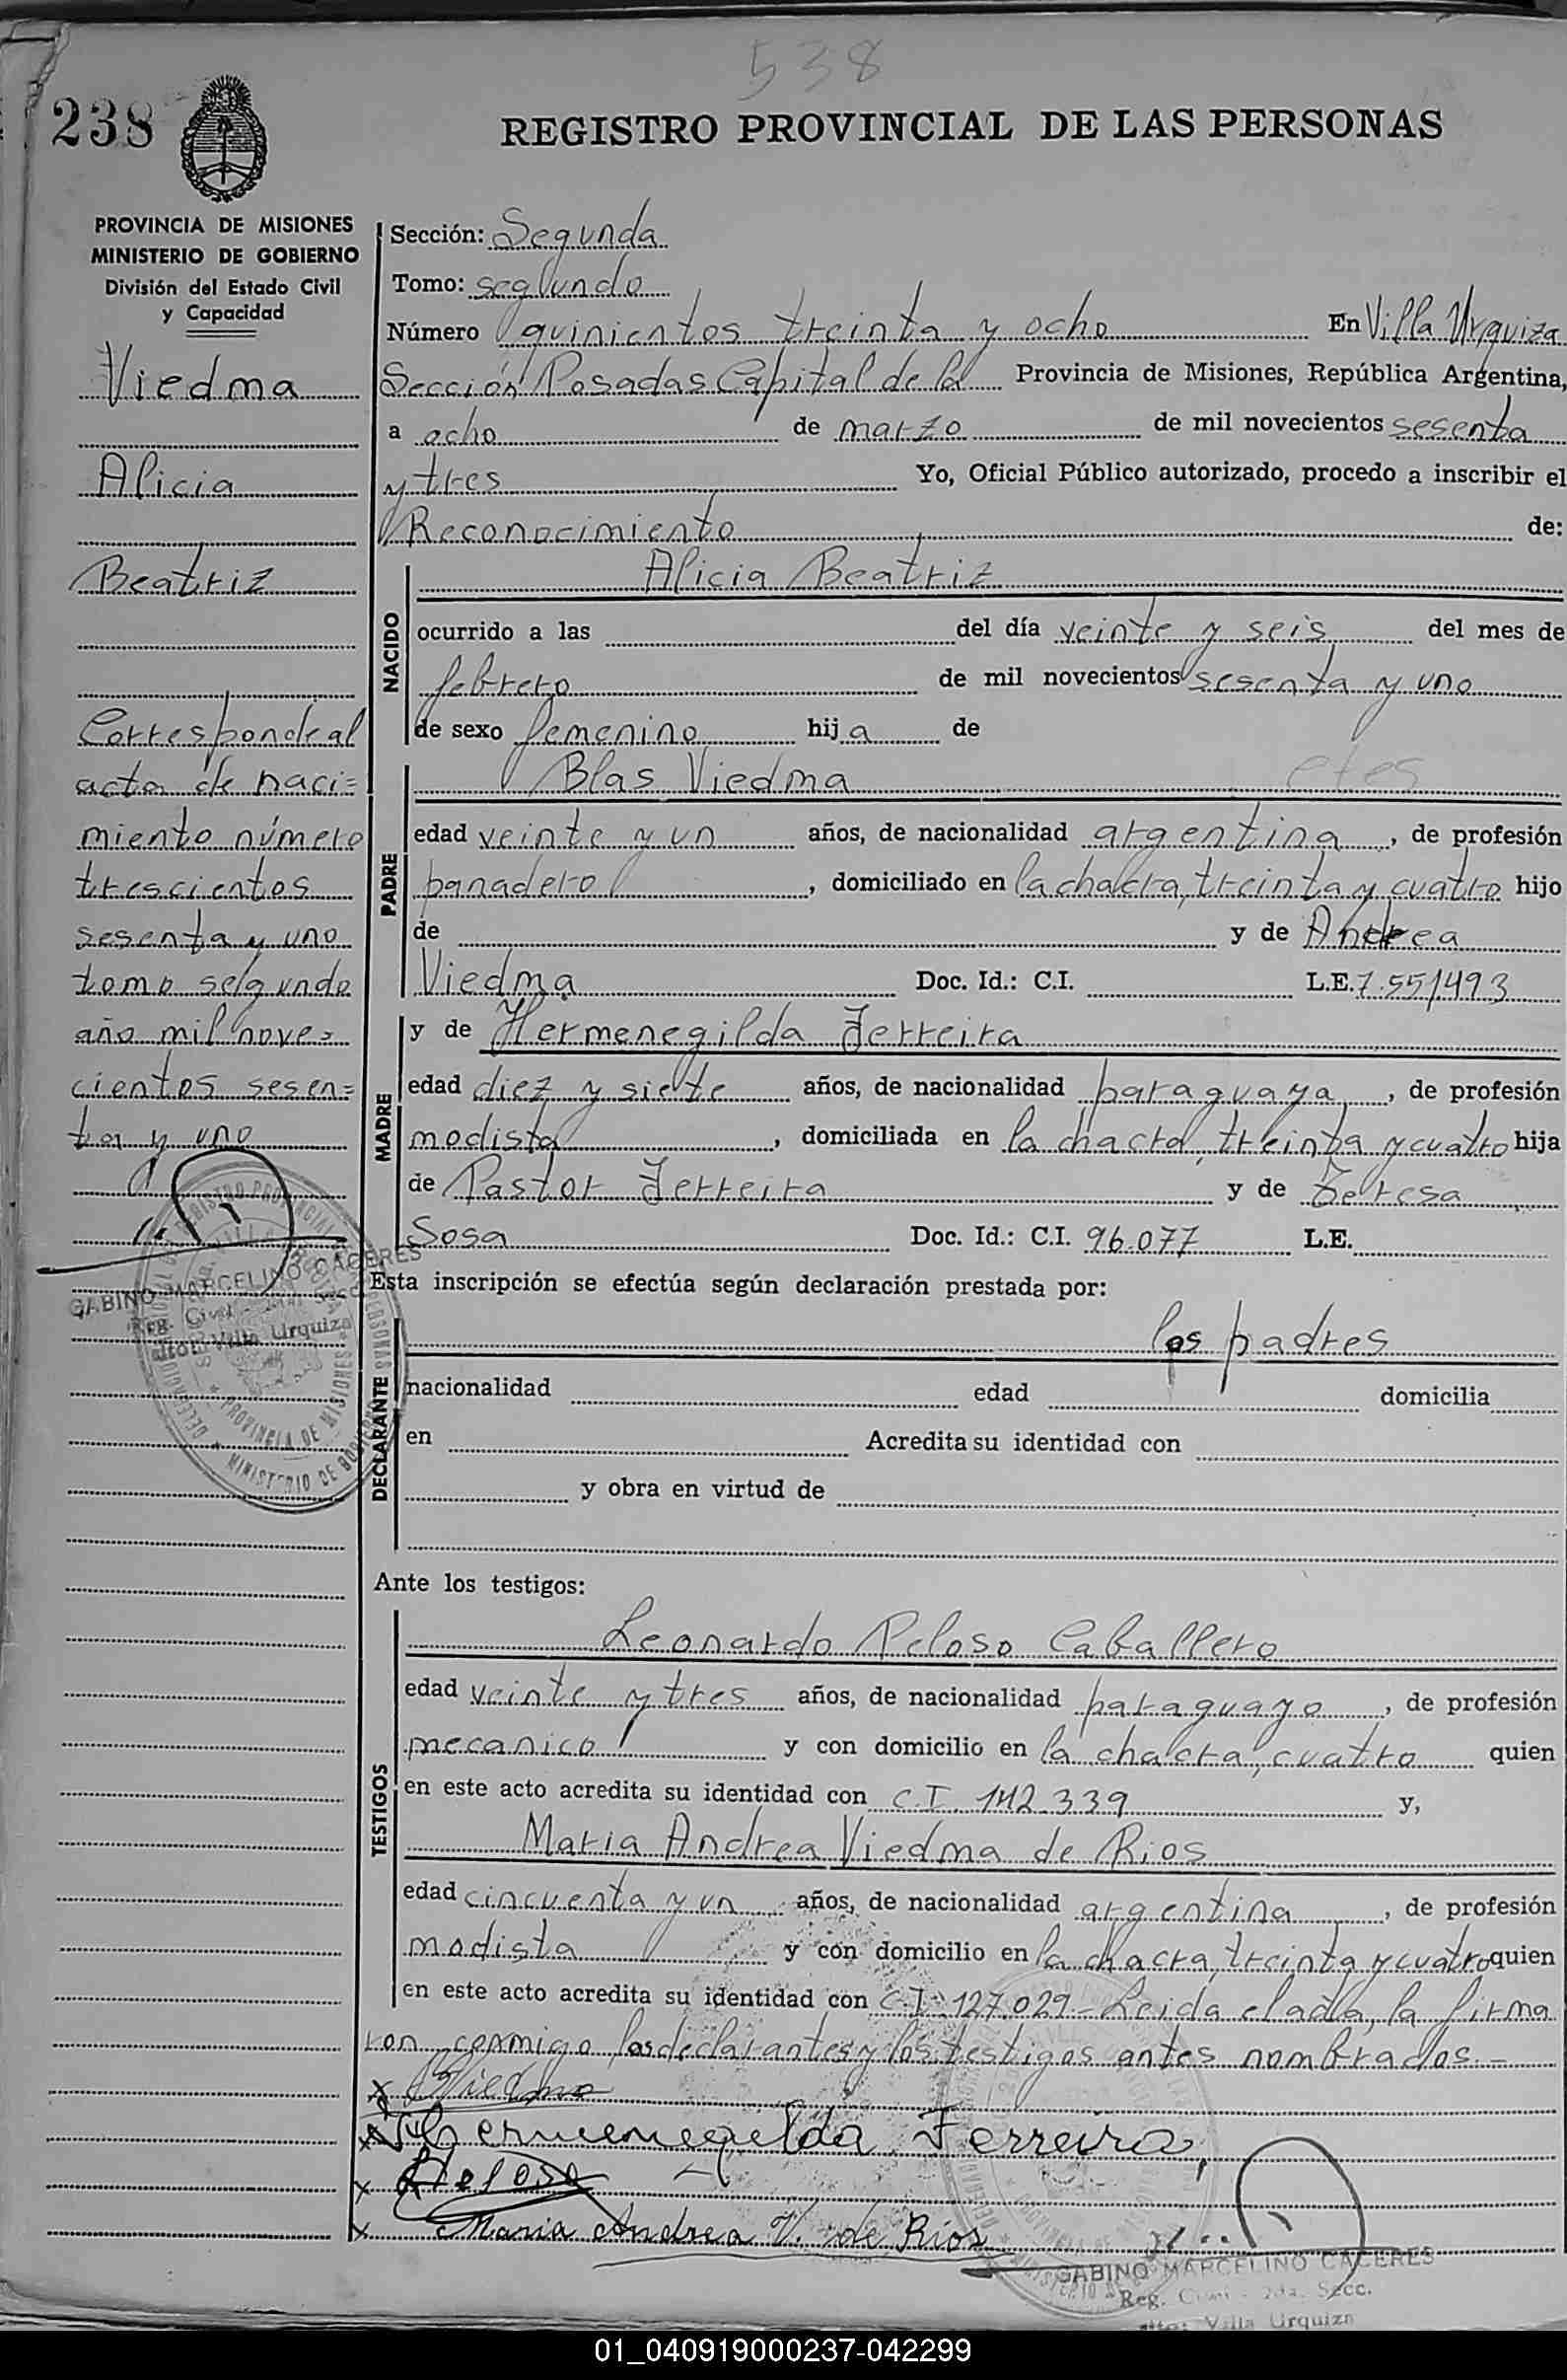 538
238
REGISTRO PROVINCIAL DE LAS PERSONAS
PROVINCIA DE MISIONES
MINISTERIO DE GOBIERNO
División del Estado Civil
y Capacidad
Viedma
Alicia
Beatriz
Corresponde al
acta de naci=
miento número
trescientos
sesenta y uno
tomo segundo
año mil nove=
cientos sesen=
ta y uno
GABINO MARCELINO CACERES
Reg. Civil - 2da. Secc.
Villa Urquiza
Sección: Segunda
Tomo: segundo
Número quinientos treinta y ocho En Villa Urquiza
Sección Posadas Capital de la Provincia de Misiones, República Argentina,
a ocho de marzo de mil novecientos sesenta
y tres Yo, Oficial Público autorizado, procedo a inscribir el
Reconocimiento de:
NACIDO
Alicia Beatriz
ocurrido a las del día veinte y seis del mes de
febrero de mil novecientos sesenta y uno
de sexo femenino hija de
PADRE
Blas Viedma
edad veinte y un años, de nacionalidad argentina, de profesión
panadero, domiciliado en la chacra, treinta y cuatro hijo
de y de Andrea
Viedma Doc. Id.: C.I. L.E. 7.551.493
MADRE
y de Hermenegilda Ferreira
edad diez y siete años, de nacionalidad paraguaya, de profesión
modista, domiciliada en la chacra, treinta y cuatro hija
de Pastor Ferreira y de Teresa
Sosa Doc. Id.: C.I. 96.077 L.E.
Esta inscripción se efectúa según declaración prestada por:
DECLARANTE
los padres
nacionalidad edad domicilia
en Acredita su identidad con
y obra en virtud de
Ante los testigos:
TESTIGOS
Leonardo Peloso Caballero
edad veinte y tres años, de nacionalidad paraguayo, de profesión
mecanico y con domicilio en la chacra, cuatro quien
en este acto acredita su identidad con C.I. 142.339 y,
Maria Andrea Viedma de Rios
edad cincuenta y un años, de nacionalidad argentina, de profesión
modista y con domicilio en la chacra, treinta y cuatro quien
en este acto acredita su identidad con C.I. 127.029- Leida el acta, la firma
ron conmigo los declarantes y los testigos antes nombrados.-
x Viedma
x Hermenegilda Ferreira
x Peloso
x Maria Andrea V. de Rios
GABINO MARCELINO CACERES
Reg. Civil - 2da. Secc.
Villa Urquiza
01_040919000237-042299